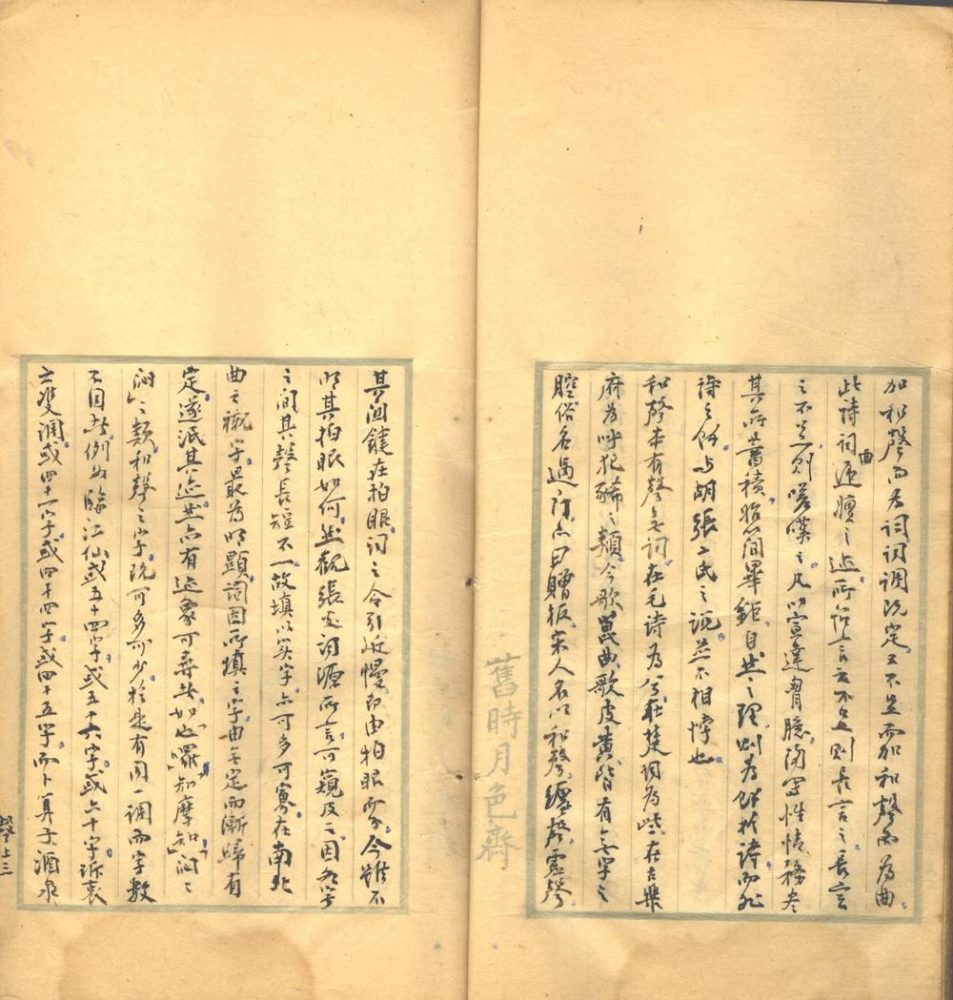 加和聲而爲詞詞調既定又不足而加和聲而爲曲
此詩詞曲遞嬗之迹所謂言之不足則長言之長言
之不足則嗟嘆之凡以宣達胷臆陶寫性情務尽
其所蓄積始簡畢鉅自然之理則爲餘於詩而非
詩之餘与胡張二氏之說並不相悖也
和聲本有聲無詞在毛詩爲兮在楚詞爲些在古樂
府爲呼犯豨之類今歌崑曲歌皮黄皆有無字之
腔俗名過門亦曰贈板宋人名以和聲纏聲虛聲
其関鍵在拍眼詞之令引近慢即由拍眼分今雖不
明其拍眼如何然觀張炎詞源所言可窺及之因爲字
之間其聲長短不一故填以实字亦可多可寡在南北
曲之襯字最爲明顯詞因所填之字由無定而漸歸有
定遂泯其迹然亦有迹象可尋者如也囉知摩知詞之
類和聲之字既可多可少於是有同一調而字數
不同者例如臨江仙或五十四字或五十六字或六十字訴衷
之雙調或四十一字或四十四字或四十五字而卜算子酒泉
舊時月色齋
聲上三